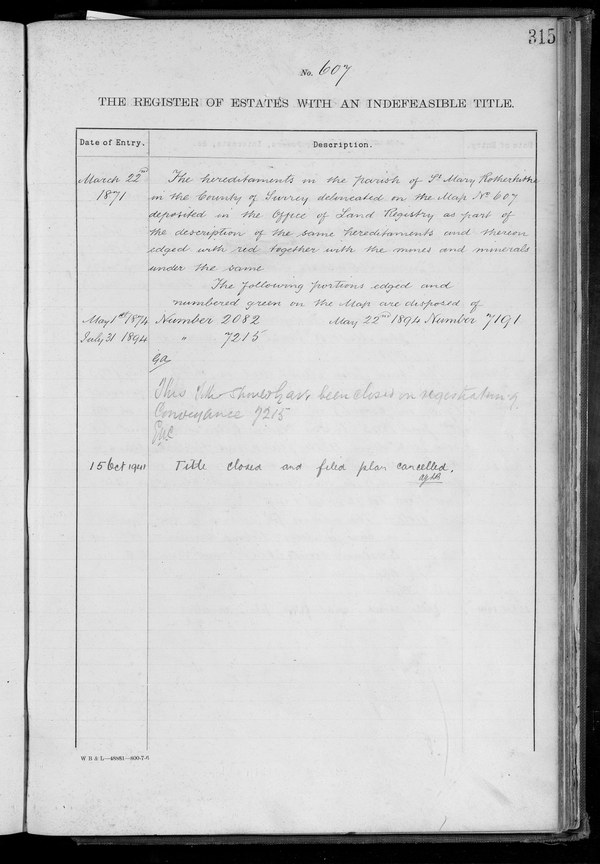 315
No. 607
THE REGISTER OF ESTATES WITH AN INDEFEASIBLE TITLE.
Date of Entry. Description.
March 22nd The hereditaments in the parish of St Mary Rotherhithe
1871 in the County of Surrey delineated on the Map No 607
deposited in the Office of Land Registry as part of
the description of the same hereditaments and thereon
edged with red together with the mines and minerals
under the same
The following portions edged and
numbered green on the Map are disposed of
May 1st 1874 Number 2082 May 22nd 1894 Number 7191
July 31 1894 " 7215
This title should have been closed on registration of
Conveyance 7215
15 Oct 1941 Title closed and filed plan cancelled.
W B & L—48981—800-7-6